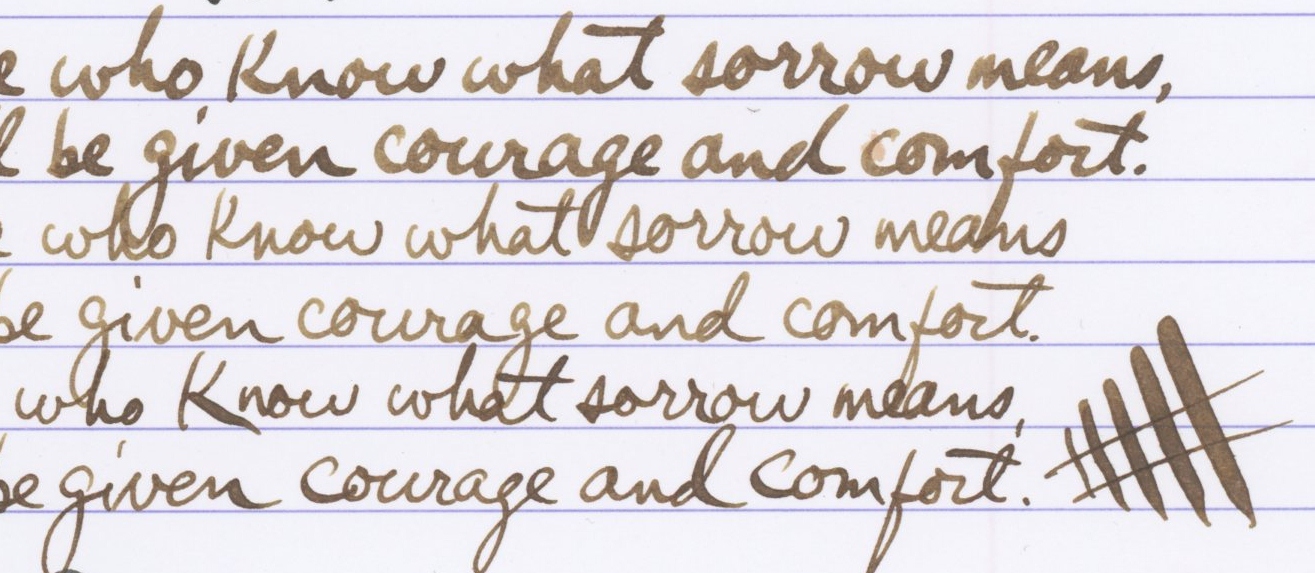 who Know what sorrow means,
be given courage and comfort.
who Know what sorrow means
be given courage and comfort.
who Know what sorrow means,
be given courage and comfort.